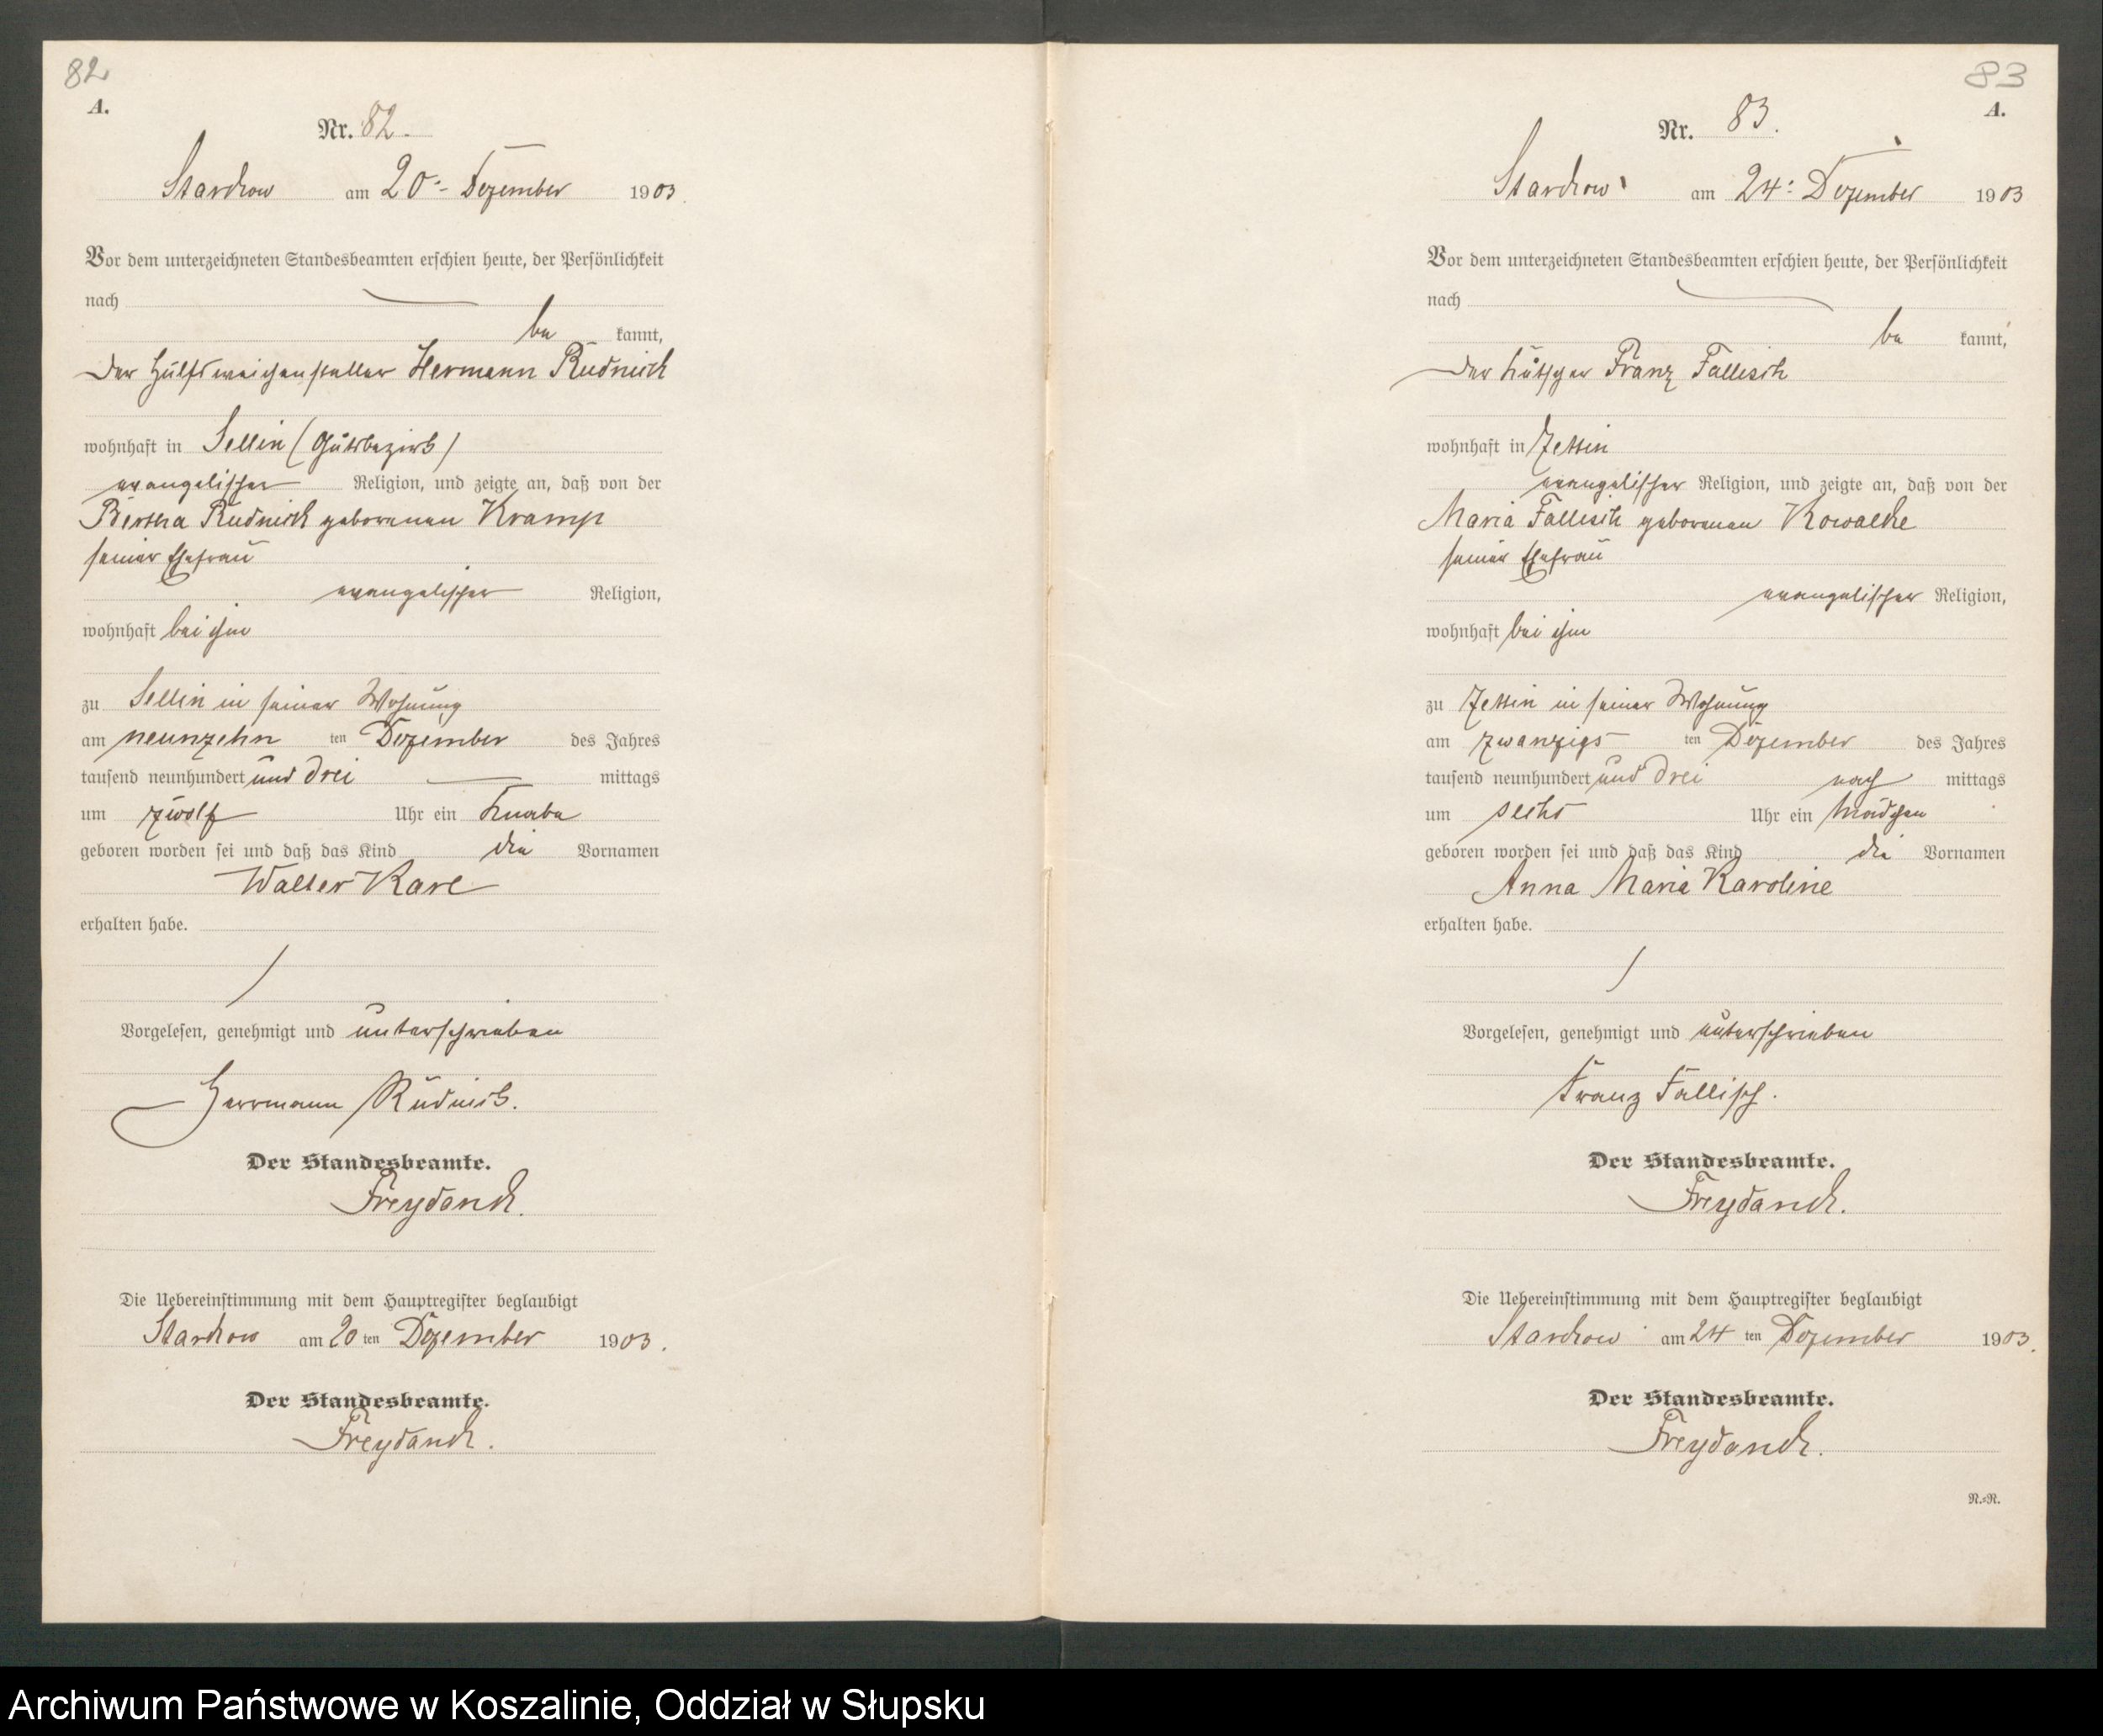 82
A.
Nr. 82.
Starckow am 20t Dezember 1903.
Vor dem unterzeichneten Standesbeamten erschien heute, der Persönlichkeit
nach
be kannt,
der Hülfsweichensteller Hermann Rudnick
wohnhaft in Sellin (Gutsbezirk)
evangelischer Religion, und zeigte an, daß von der
Bertha Rudnick geborenen Kramp
seiner Ehefrau
evangelischer Religion,
wohnhaft bei ihm
zu Sellin in seiner Wohnung
am neunzehn ten Dezember des Jahres
tausend neunhundert und drei mittags
um zwölf Uhr ein Knabe
geboren worden sei und daß das Kind die Vornamen
Walter Karl
erhalten habe.
Vorgelesen, genehmigt und unterschrieben
Herrmann Rudnick.
Der Standesbeamte.
Freydanck.
Die Uebereinstimmung mit dem Hauptregister beglaubigt
Starckow am 20 ten Dezember 1903.
Der Standesbeamte.
Freydanck.
83
A.
Nr. 83.
Starckow am 24t Dezember 1903
Vor dem unterzeichneten Standesbeamten erschien heute, der Persönlichkeit
nach
be kannt,
der Franz Fallisch
wohnhaft in Zettin
evangelischer Religion, und zeigte an, daß von der
Maria Fallisch geborenen Kowalke
seiner Ehefrau
evangelischer Religion,
wohnhaft bei ihm
zu Zettin in seiner Wohnung
am zwanzigs ten Dezember des Jahres
tausend neunhundert und drei nach mittags
um sechs Uhr ein Mädchen
geboren worden sei und daß das Kind die Vornamen
Anna Maria Karoline
erhalten habe.
Vorgelesen, genehmigt und unterschrieben
Franz Fallisch.
Der Standesbeamte.
Freydanck.
Die Uebereinstimmung mit dem Hauptregister beglaubigt
Starckow am 24 ten Dezember 1903.
Der Standesbeamte.
Freydanck.
N.=R.
Archiwum Państwowe w Koszalinie, Oddział w Słupsku